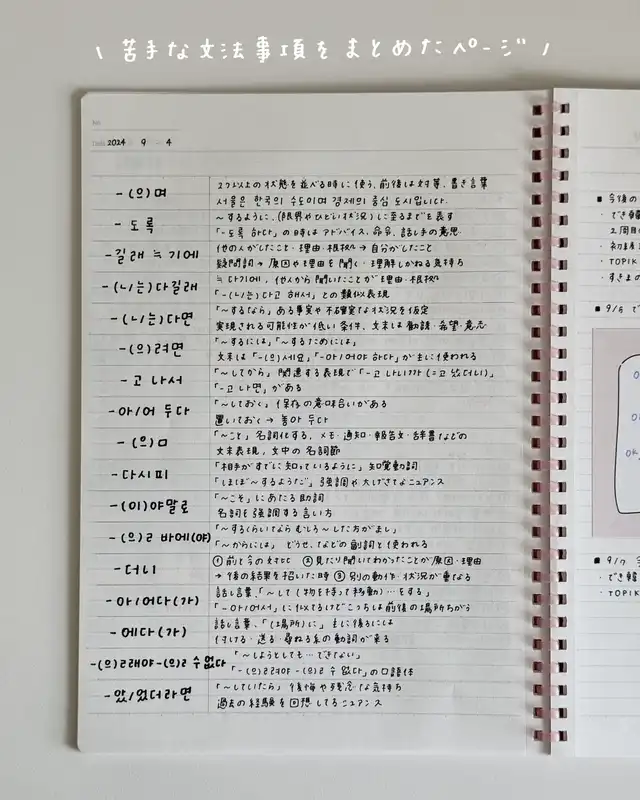 苦手な文法事項をまとめたページ
No.
Date 2024 9 4
-(으)며
2つ以上の状態を並べる時に使う、前後は対等、書き言葉
서울은 한국의 수도이며 경제의 중심 도시입니다.
-도록
~するように、(限界やひどい状況)に至るまでを表す
「-도록 하다」の時はアドバイス、命令、話し手の意思
-길래 ≒ 기에
他の人がしたこと・理由・根拠 → 自分がしたこと
疑問詞→原因や理由を聞く・理解しかねる気持ち
-(ㄴ/는)다길래
≒ 다기에, 他人から聞いたことが理由・根拠
「-(ㄴ/는)다고 해서」との類似表現
-(ㄴ/는)다면
「~するなら」ある事実や不確実な状況を仮定
実現される可能性が低い条件、文末は勧誘・希望・意志
-(으)려면
「~するには」「~するためには」
文末は「-(으)세요」「-아/어야 하다」が主に使われる
-고 나서
「~してから」関連する表現で「-고 나니까(=고 났더니)」
「-고 나면」がある
-아/어 두다
「~しておく」保存の意味合いがある
置いておく → 놓아 두다
-(으)ㅁ
「~こと」名詞化する、メモ・通知・報告文・辞書などの
文末表現、文中の名詞節
-다시피
「相手がすでに知っているように」知覚動詞
「ほぼ~するようだ」強調や大げさなニュアンス
-(이)야말로
「~こそ」にあたる助詞
名詞を強調する言い方
-(으)ㄹ 바에(야)
「~するくらいなら むしろ~した方がまし」
「~からには」 どうせ、などの副詞と使われる
-더니
①前と今の対比 ②見たり聞いてわかったことが原因・理由
→ 後の結果を招いた時 ③別の動作・状況が重なる
-아/어다(가)
話し言葉、「~して(物を持って移動)…をする」
「-아/어서」に似てるけどこっちは前後の場所ちがう
-에다(가)
話し言葉、「(場所)に」主に後ろには
付ける・送る・尋ねる系の動詞が来る
-(으)ㄹ래야 -(으)ㄹ 수 없다
「~しようとしても…できない」
「-(으)려야 -(으)ㄹ 수 없다」の口語体
-았/었더라면
「~していたら」後悔や残念な気持ち
過去の経験を回想してるニュアンス
■ 今後の
・でき韓
2周目
・初ま
・TOPIK
・すきよ
■ 9/5 で
■ 9/7 今
・でき韓
・TOPIK